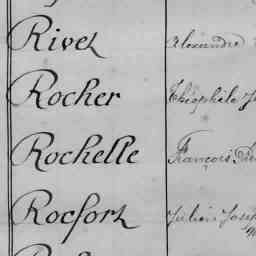 Rivet Alexandre
Rocher Théophile
Rochelle François
Rocfort Julien Joseph